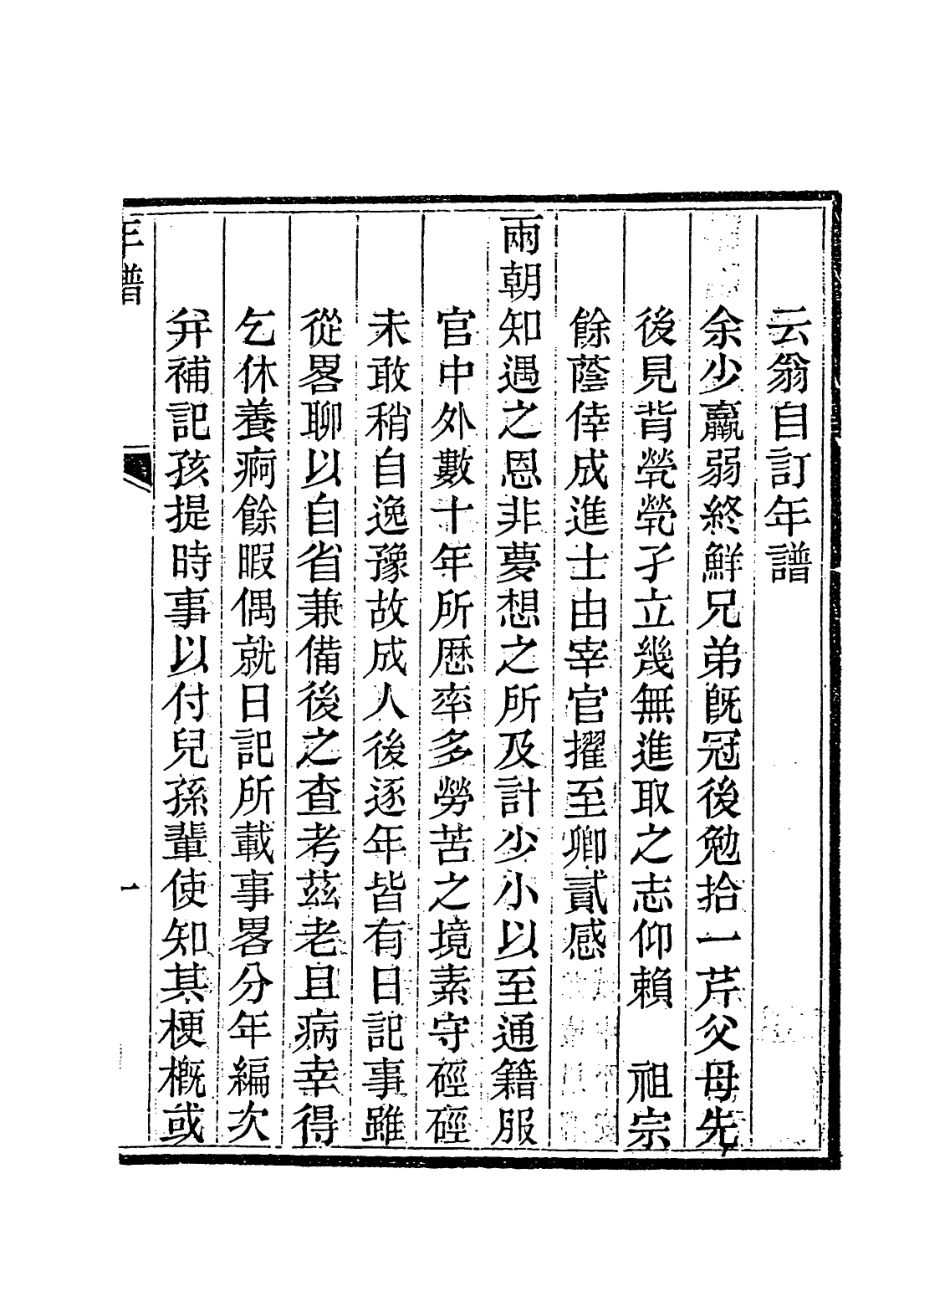 云翁自訂年譜
余少羸弱終鮮兄弟旣冠後勉拾一芹父母先
後見背煢煢孑立幾無進取之志仰賴　祖宗
餘蔭倖成進士由宰官擢至卿貳感
兩朝知遇之恩非夢想之所及計少小以至通籍服
官中外數十年所歷率多勞苦之境素守硜硜
未敢稍自逸豫故成人後逐年皆有日記事雖
從畧聊以自省兼備後之查考茲老且病幸得
乞休養痾餘暇偶就日記所載事畧分年編次
幷補記孩提時事以付兒孫輩使知其梗槪或
年譜
一